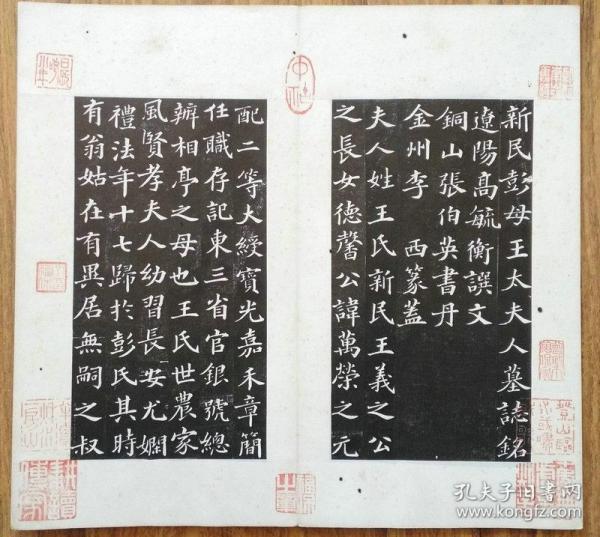 新民彭母王太夫人墓誌銘
遼陽高毓衡譔文
銅山張伯英書丹
金州李　西篆蓋
夫人姓王氏新民王義之公
之長女德馨公諱萬榮之元
配二等大綬寶光嘉禾章簡
任職存記東三省官銀號總
辦相亭之母也王氏世農家
風賢孝夫人幼習長安尤嫻
禮法年十七歸於彭氏其時
有翁姑在有異居無嗣之叔
孔夫子旧书网
kongfz.com